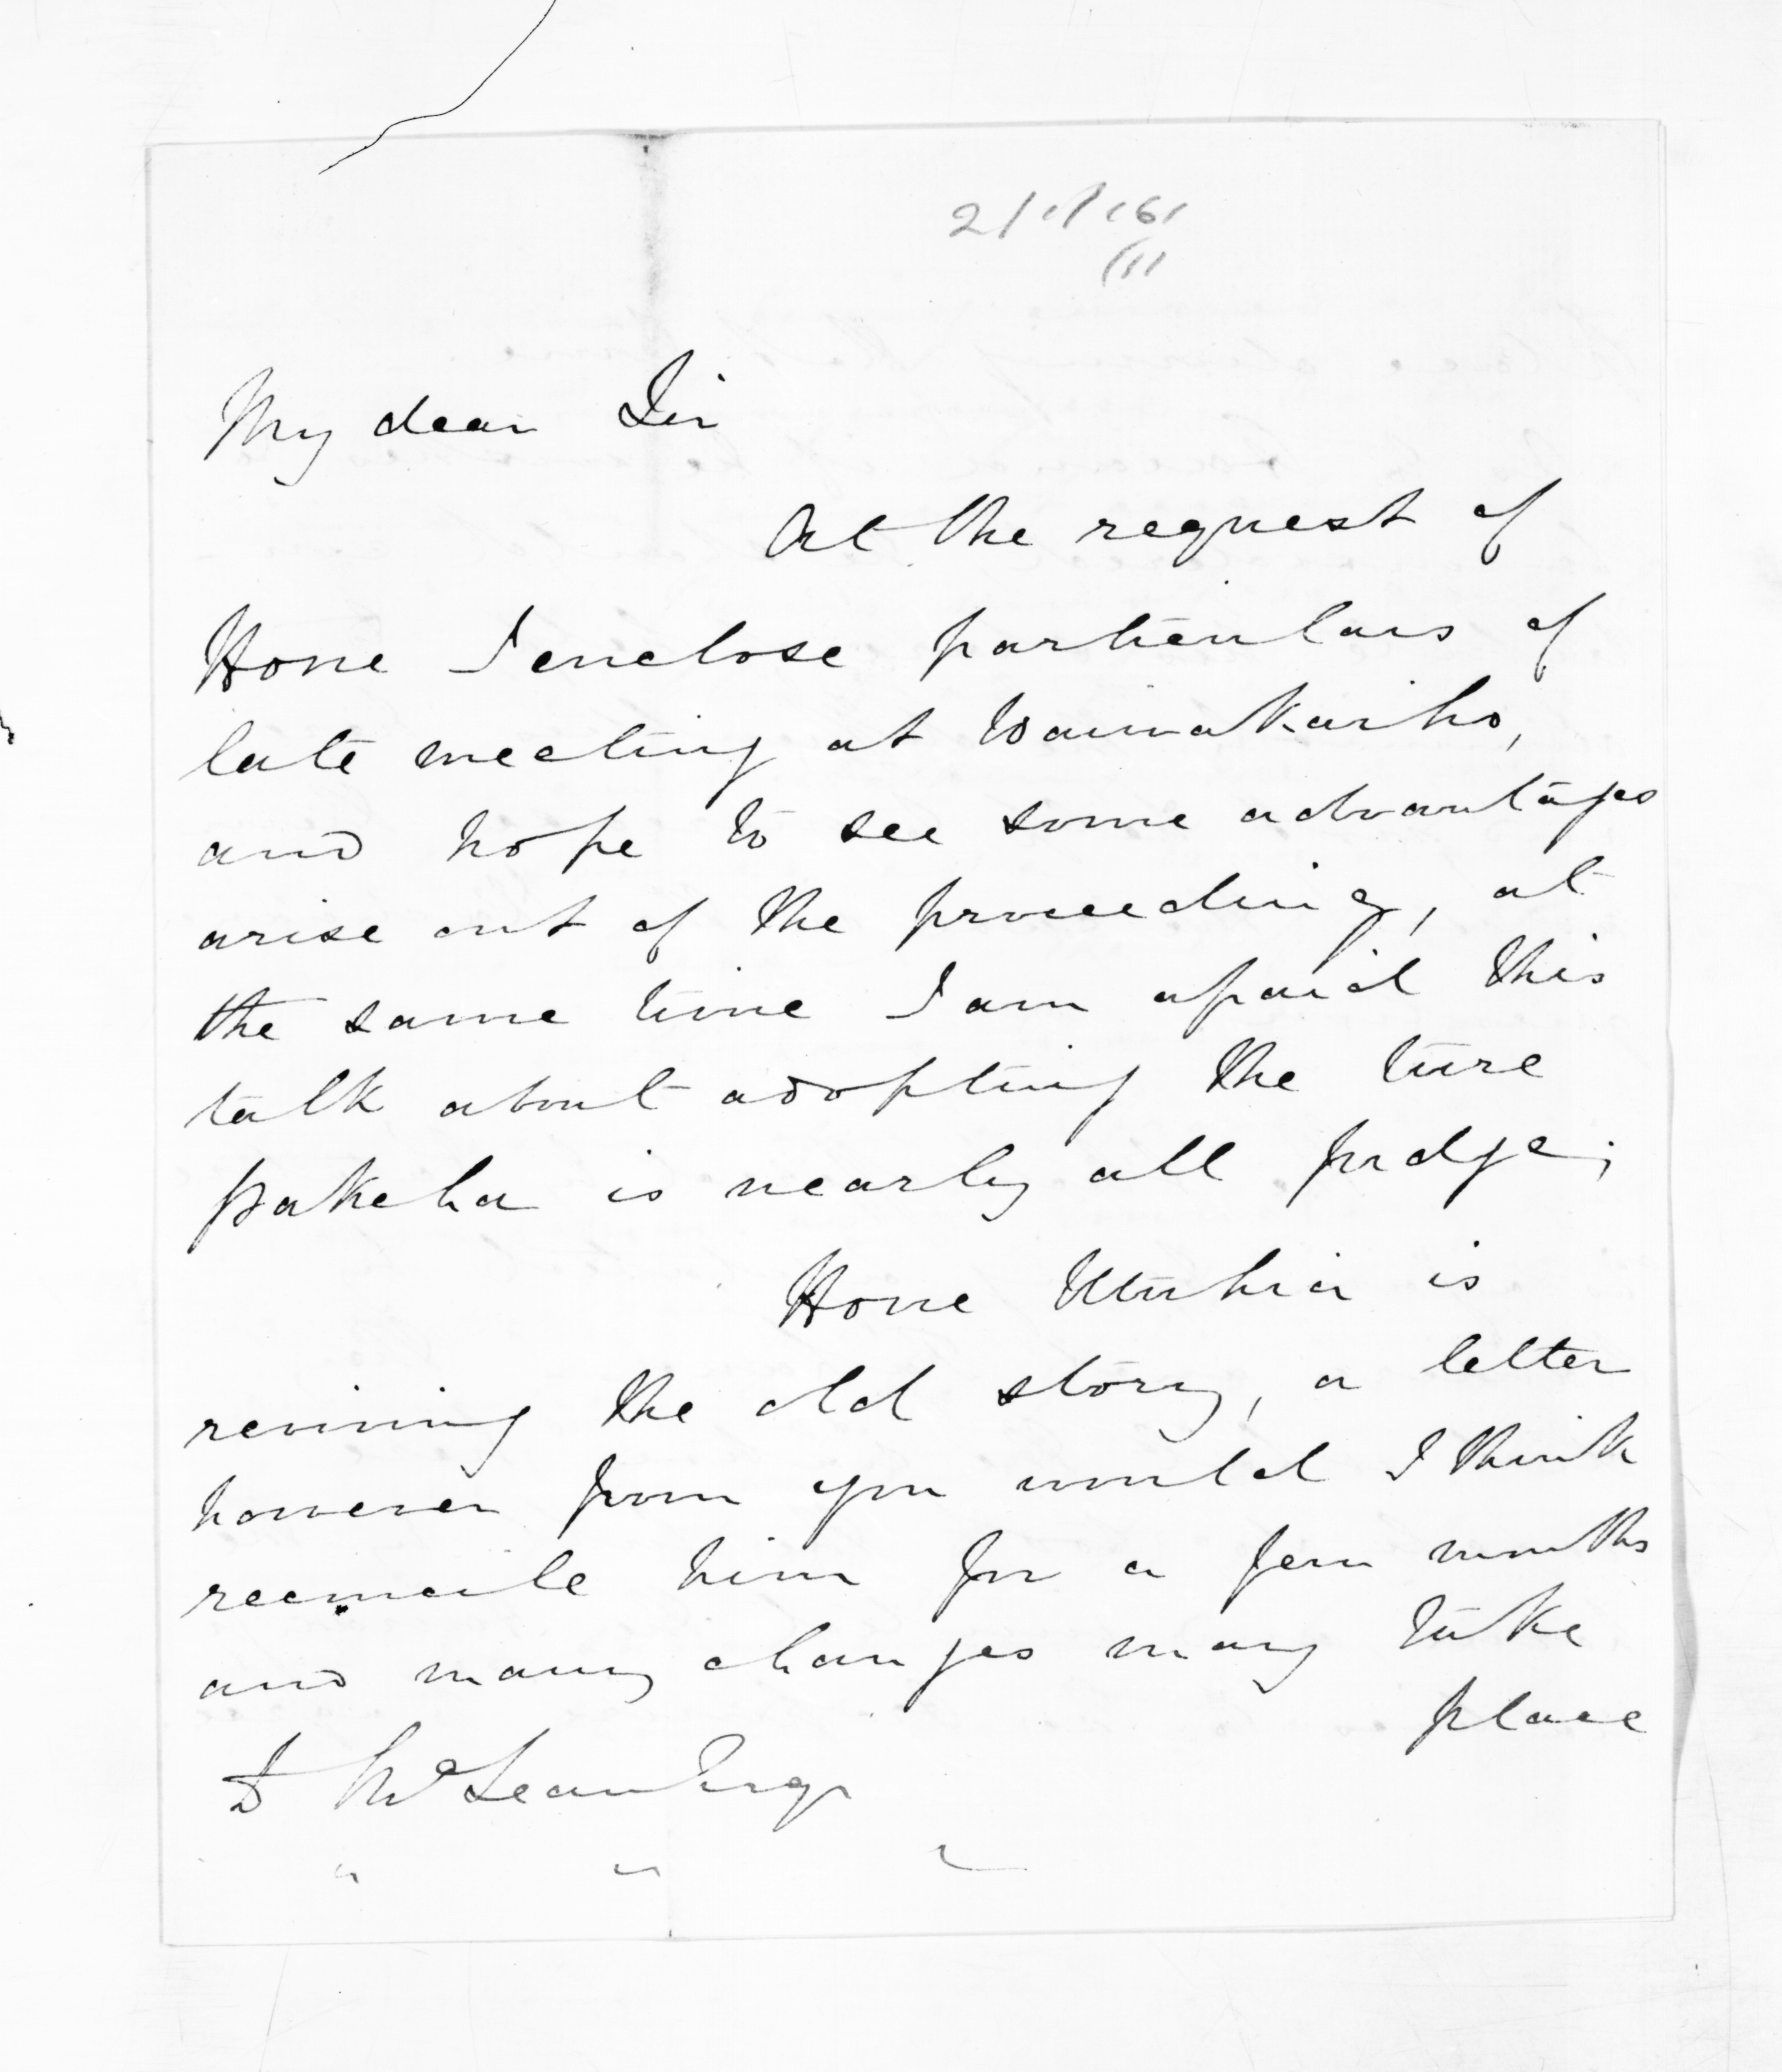 My dear Sir
At the request of
Hone I enclose particulars of
late meeting at Waimakariho,
and hope to see some advantages
arise out of the proceeding, at
the same time I am afraid this
talk about adopting the ture
pakeha is nearly all fudge;
Hone is
reviving the old story, a letter
however from you would I think
reconcile him for a few months
and many changes may take
place
D McLean Esqr
" "